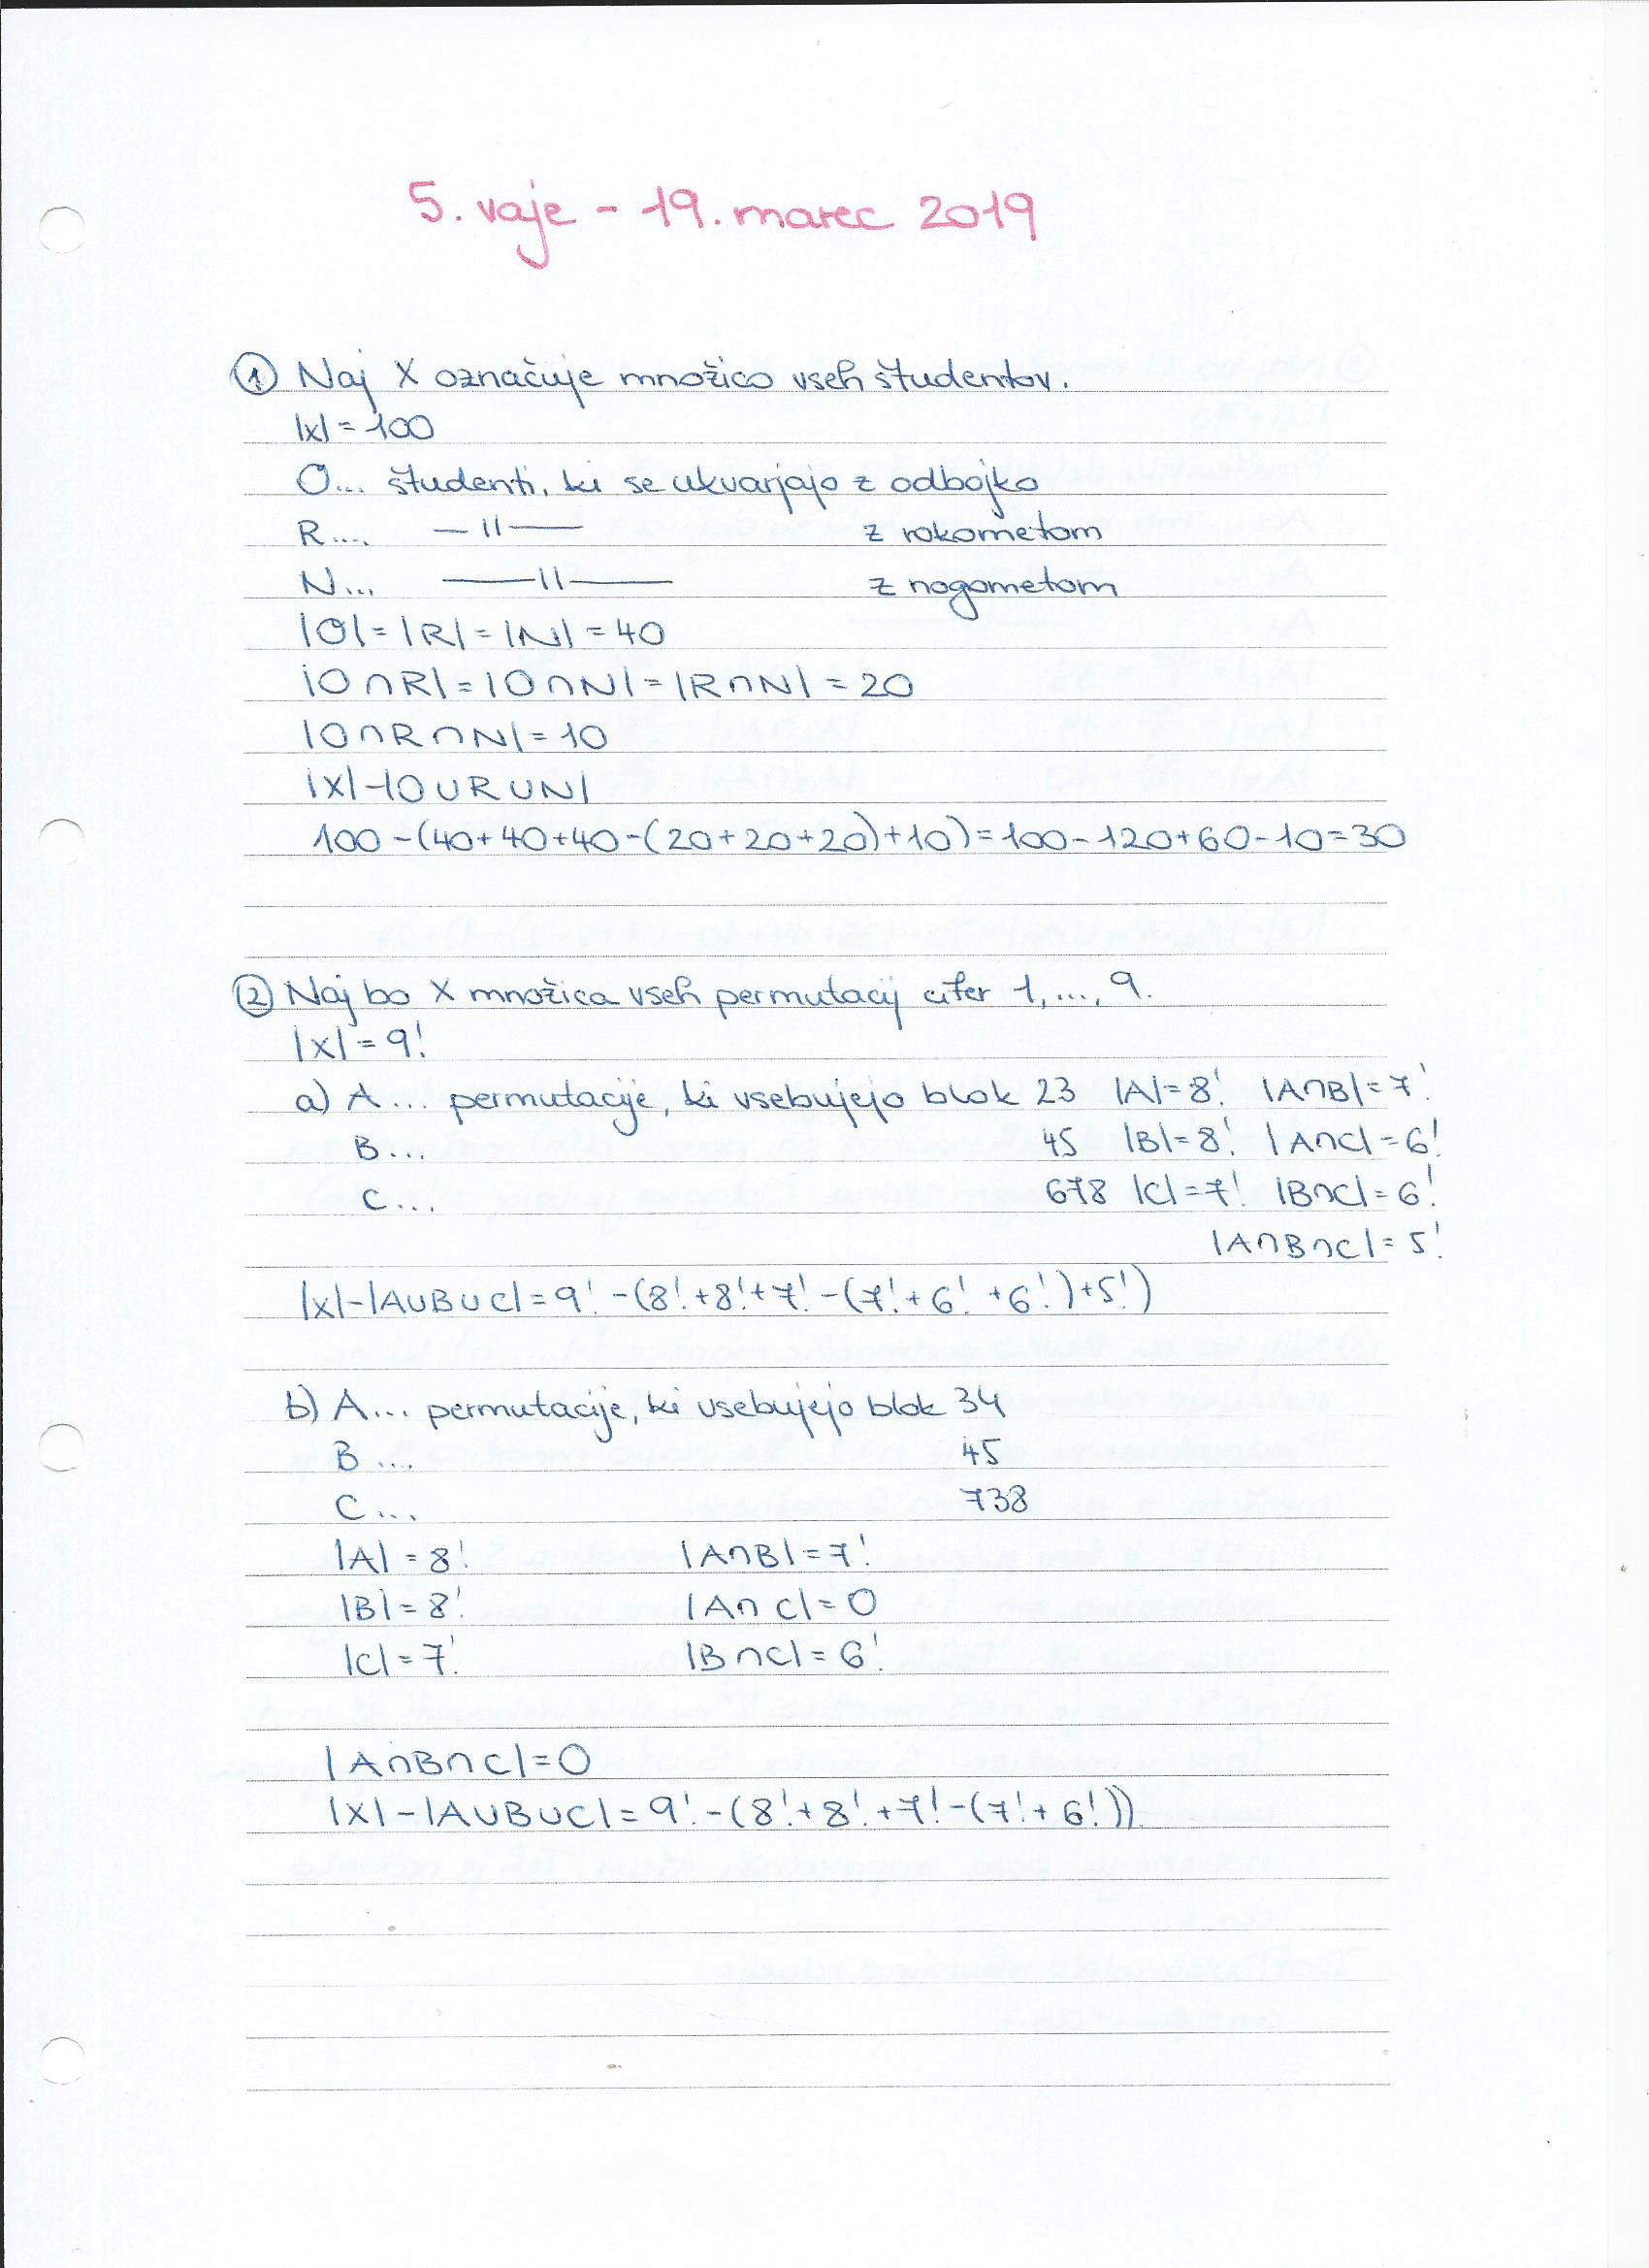 5. vaje - 19. marec 2019
① Naj X označuje množico vseh študentov.
|X| = 100
O... študenti, ki se ukvarjajo z odbojko
R.... —11— z rokometom
N... —11— z nogometom
|O| = |R| = |N| = 40
|O∩R| = |O∩N| = |R∩N| = 20
|O∩R∩N| = 10
|X|-|O∪R∪N|
100-(40+40+40-(20+20+20)+10)=100-120+60-10=30
② Naj bo X množica vseh permutacij cifer 1, ..., 9.
|X| = 9!
a) A... permutacije, ki vsebujejo blok 23 |A|=8! |A∩B|=7!
B... 45 |B|=8! |A∩C|=6!
C... 678 |C|=7! |B∩C|=6!
|A∩B∩C|=5!
|X|-|A∪B∪C|=9!-(8!+8!+7!-(7!+6!+6!)+5!)
b) A... permutacije, ki vsebujejo blok 34
B .... 45
C ... 738
|A| = 8! |A∩B|=7!
|B| = 8! |A∩C|=0
|C| = 7! |B∩C|=6!
|A∩B∩C|=0
|X|-|A∪B∪C|=9!-(8!+8!+7!-(7!+6!))